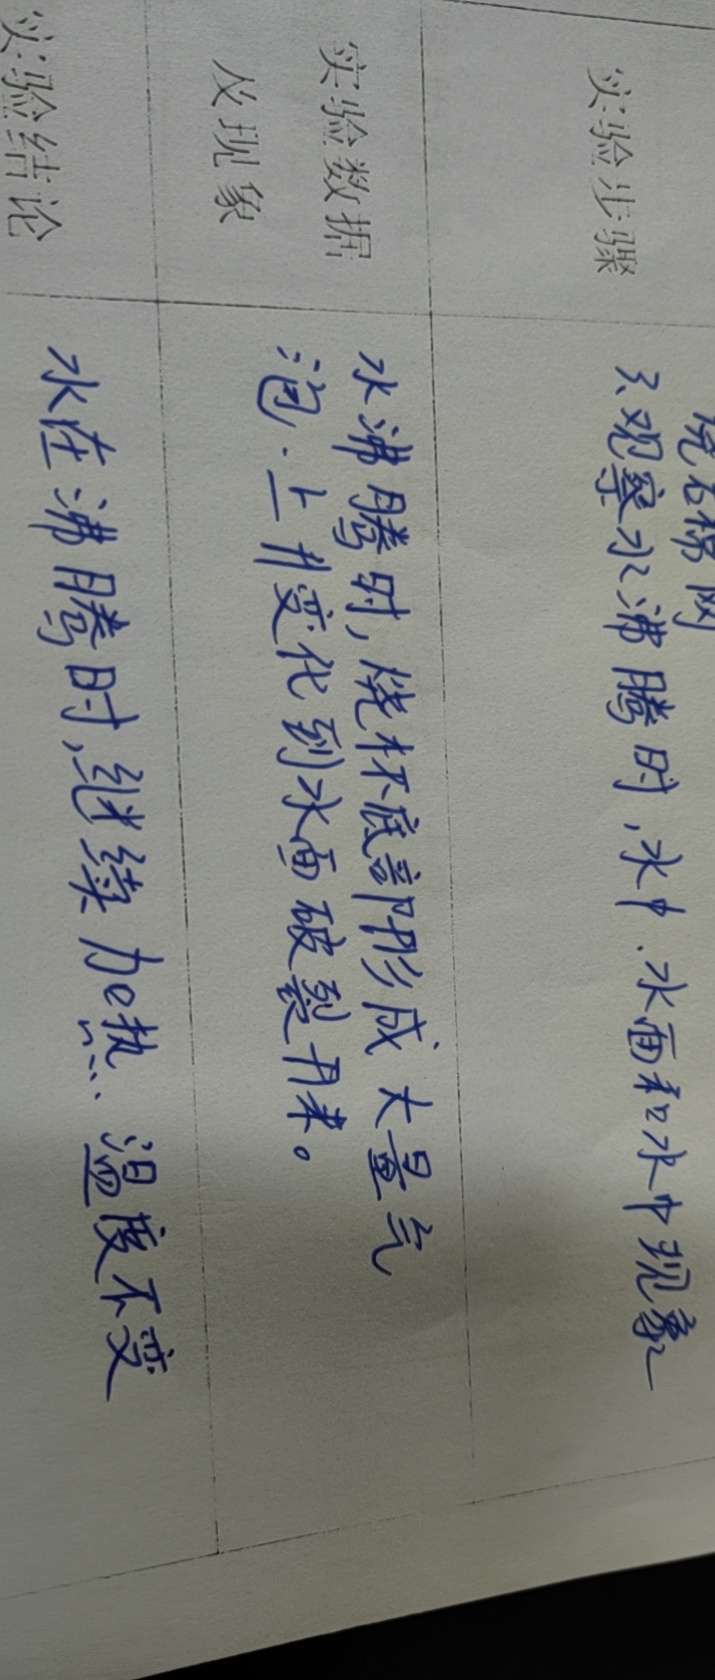 烧石棉网
实验步骤
3.观察水沸腾时,水中.水面和水中现象
实验数据
及现象
水沸腾时,烧杯底部形成大量气
泡.上升变化到水面破裂开来。
实验结论
水在沸腾时,继续加热、温度不变